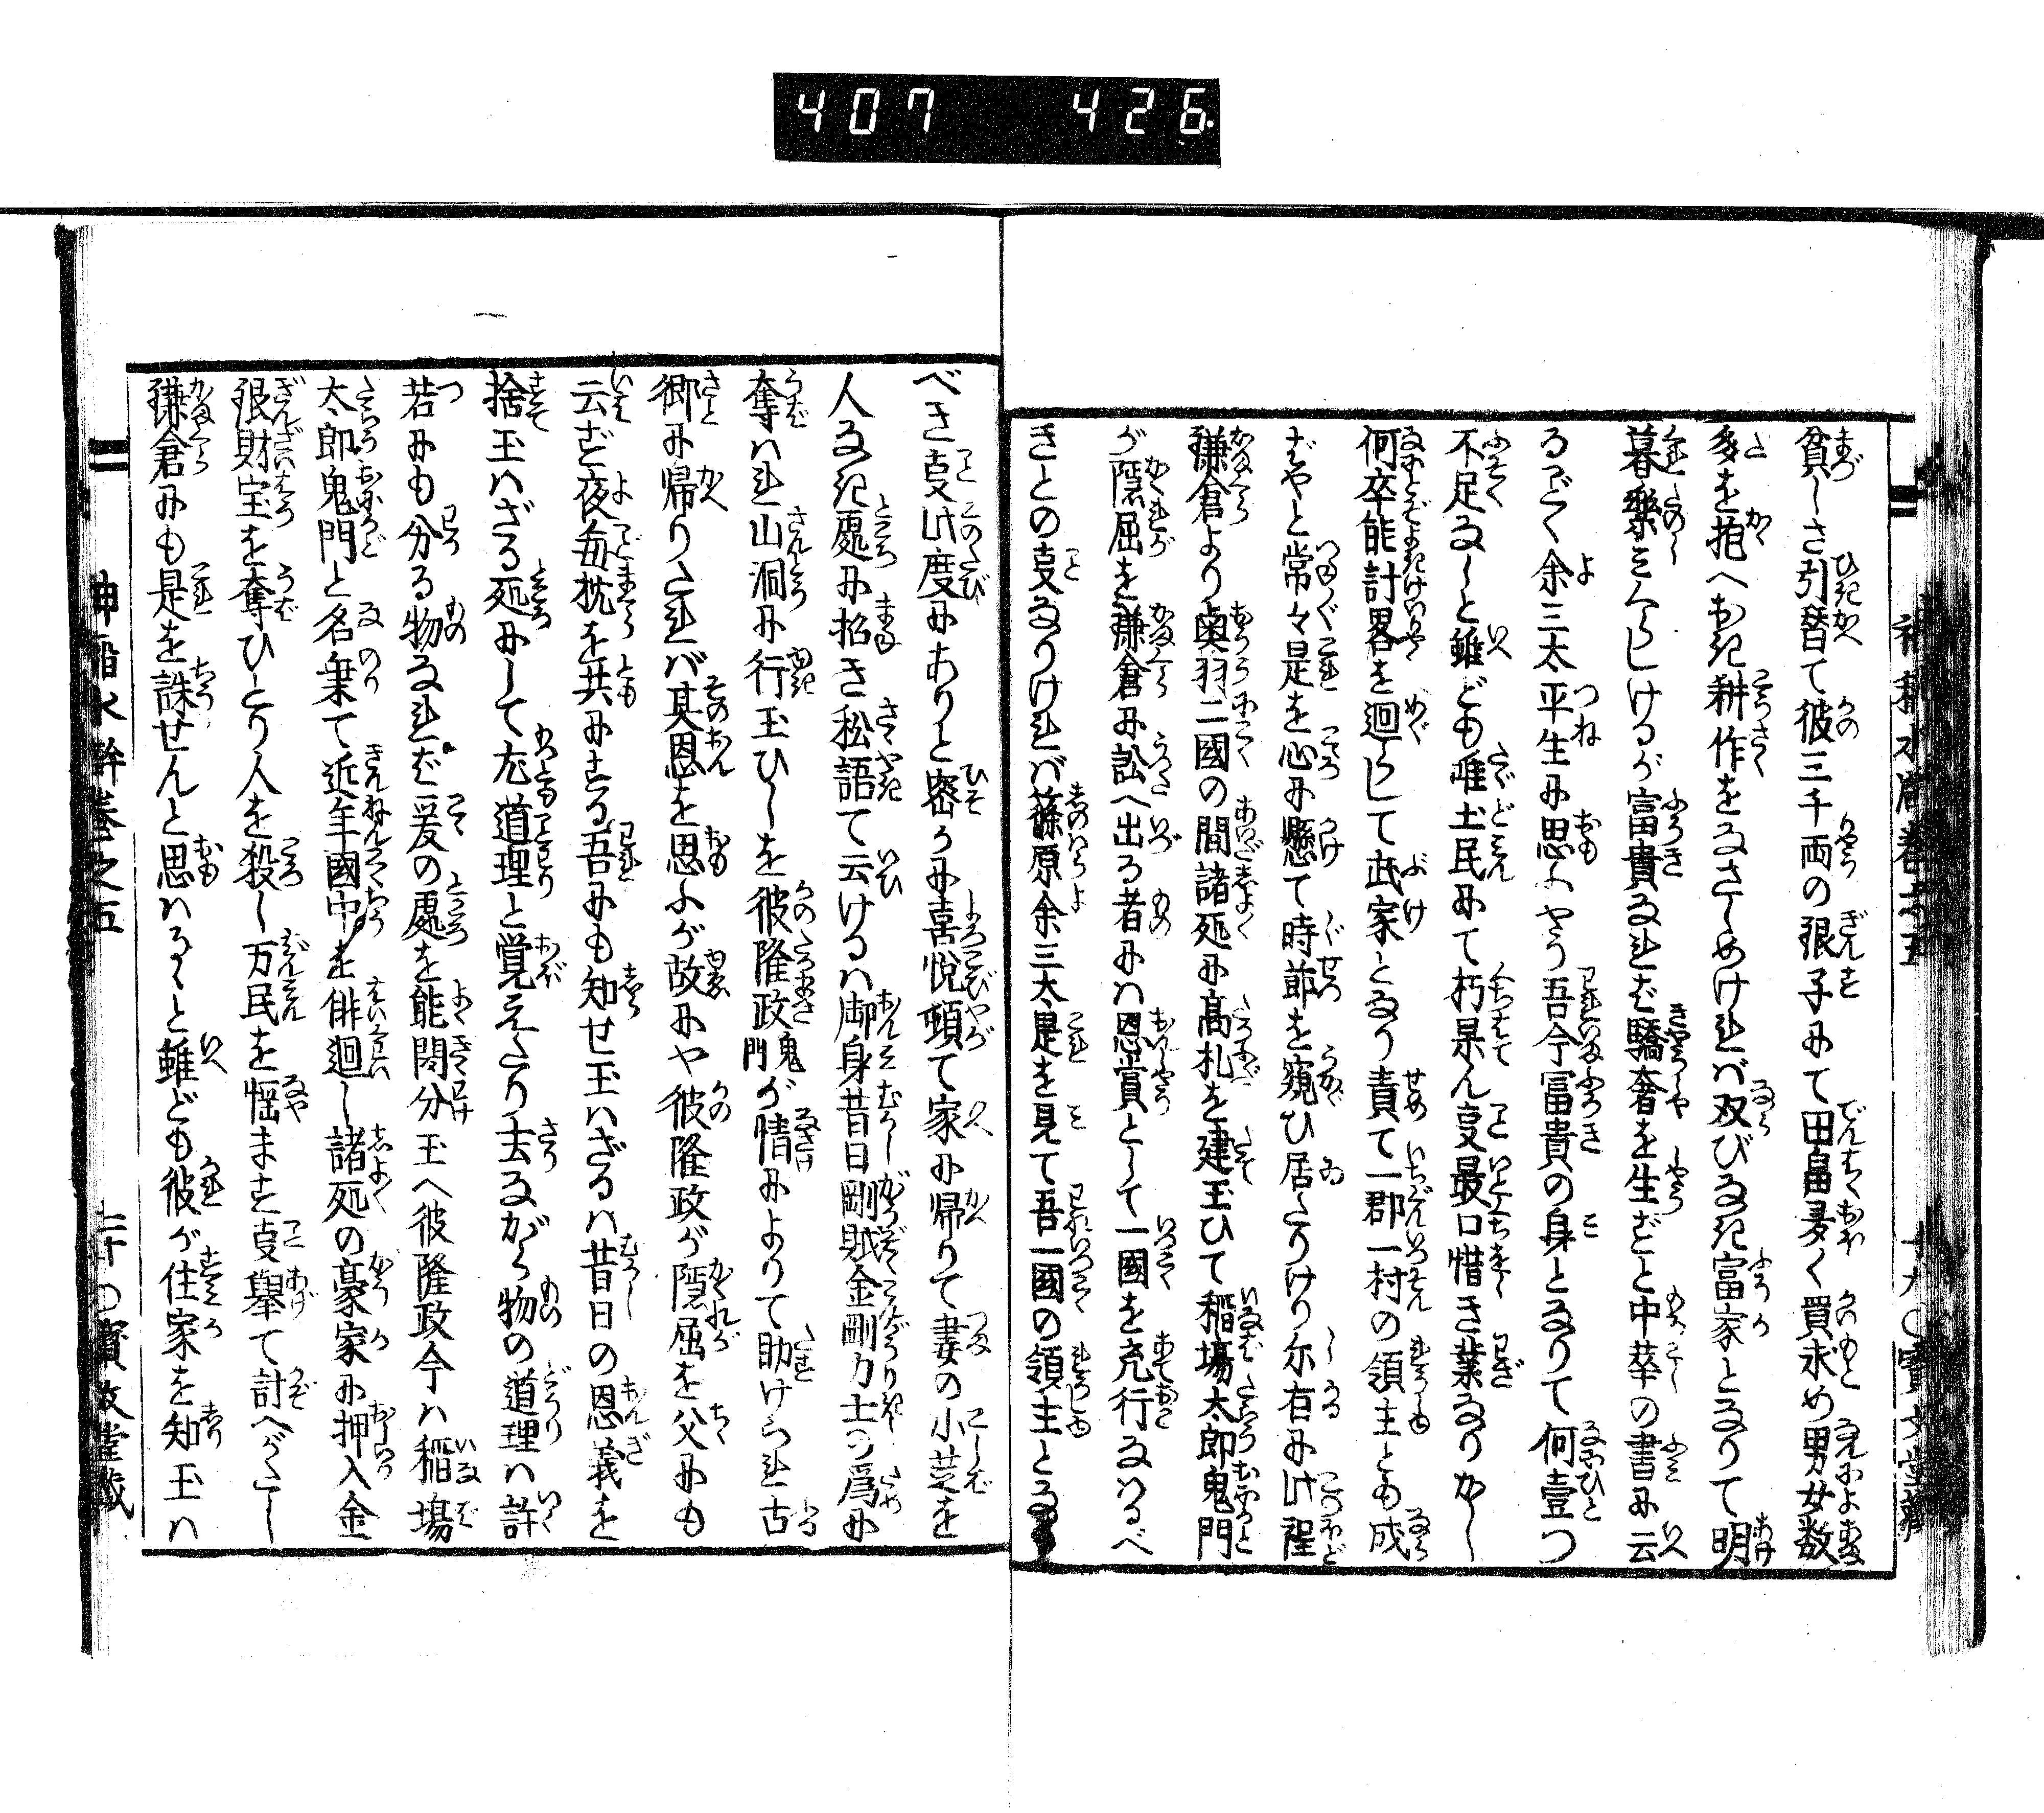 407 426
貧しさ引替て彼三千両の銀子にて田畠多く買求め男女数
多を抱へおき耕作をなさしめければ双びなき富家となりて明
暮楽み
くらしけるが富貴なれば驕奢を生ずと中華の書に云
るごく余三太平生に思ふやう吾今富貴の身となりて何壹つ
不足なしと雖ども唯土民にて朽果ん事最口惜き業なりかし
何卒能計畧を廻らして武家となり責て一郡一村の領主とも成
ばやと常々是を心に懸て時節を窺ひ居たりけり尓有に此程
鎌倉より奥羽二國の間諸処に高札を建玉ひて稲場太郎鬼門
が隠屈を鎌倉に訟へ出る者には恩賞として一國を充行なはるべ
きとの事なりければ篠原余三太是を見て吾一國の領主となる
べき事此度にありと密かに喜悦頓て家に帰りて妻の小芝を
人なき處に招き私語て云けるは御身昔日剛賊金剛力士の為に
奪はれ山洞に行玉ひしを彼隆政鬼門が情によりて助けられ古
郷に帰りたれば其恩を思ふが故にや彼隆政が隠屈を父にも
云ず夜毎枕を共にする吾にも知せ玉はざるは昔日の恩義を
捨玉はざる処にして尤道理と覚えたり去ながら物の道理は許
若にも分る物なれば爰の處を能聞分玉へ彼隆政今は稲場
太郎鬼門と名乗て近年國中を俳廻し諸処の豪家に押入金
銀財宝を奪ひとり人を殺し万民を悩ます事挙て計へがたし
鎌倉にも是を誅せんと思はるゝと雖ども彼が住家を知玉は
神稲水滸巻之五
二十〇寳文堂蔵